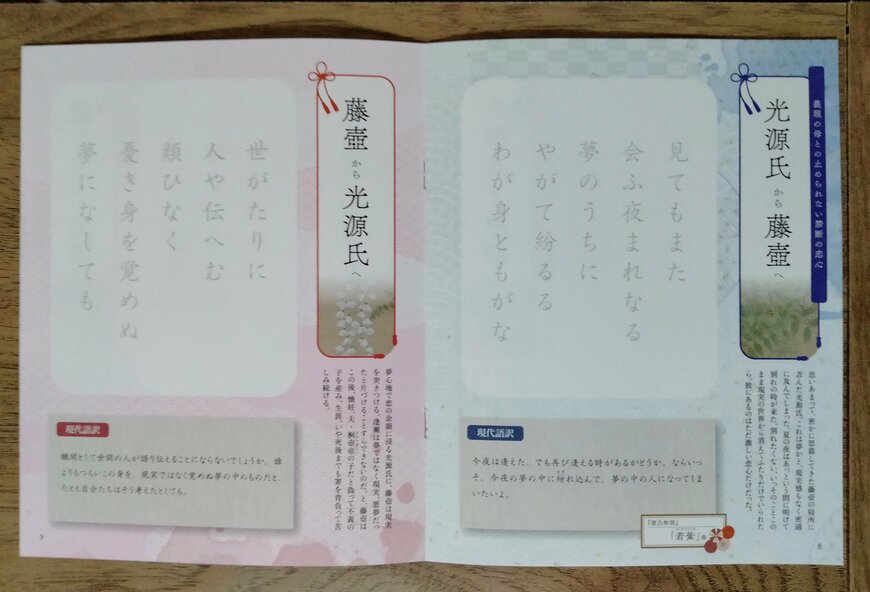 義理の母との止められない禁断の恋心
光源氏から藤壺へ
見てもまた
会ふ夜まれなる
夢のうちに
やがて紛るる
わが身ともがな
思いあまって、密かに思慕してきた藤壺の寝所に
忍んだ光源氏。これは夢かも。現実感もなく密通
に及んでしまった。夏の夜はあっという間に明けて
別れの時が来た。別れたくない、いっそのことこの
まま現実の世界から消えてふたりだけでいられた
ら。彼にあるのはただ激しい恋心だけだった。
現代語訳
今夜は逢えた、でも再び逢える時があるかどうか。ならいっ
そ、今夜の夢の中に紛れ込んで、夢の中の人になってしま
いたいよ。
『源氏物語』
「若紫」巻
8
藤壺から光源氏へ
世がたりに
人や伝へむ
類ひなく
憂き身を覚めぬ
夢になしても
夢心地で恋の余韻に浸る光源氏に、藤壺は現実
を突きつける。逢瀬は夢ではなく現実。悪夢だっ
たと片づけることすらできないのだ、と。藤壺は
この後、懐妊。夫・桐壺帝の子だと偽って不義の
子を産み、生涯、いや死後までも罪を背負って苦
しみ続ける。
現代語訳
醜聞として世間の人が語り伝えることにならないでしょうか。誰
よりもつらいこの身を、現実ではなく覚めぬ夢の中のものだと、
たとえ自分たちはそう考えたとしても。
9